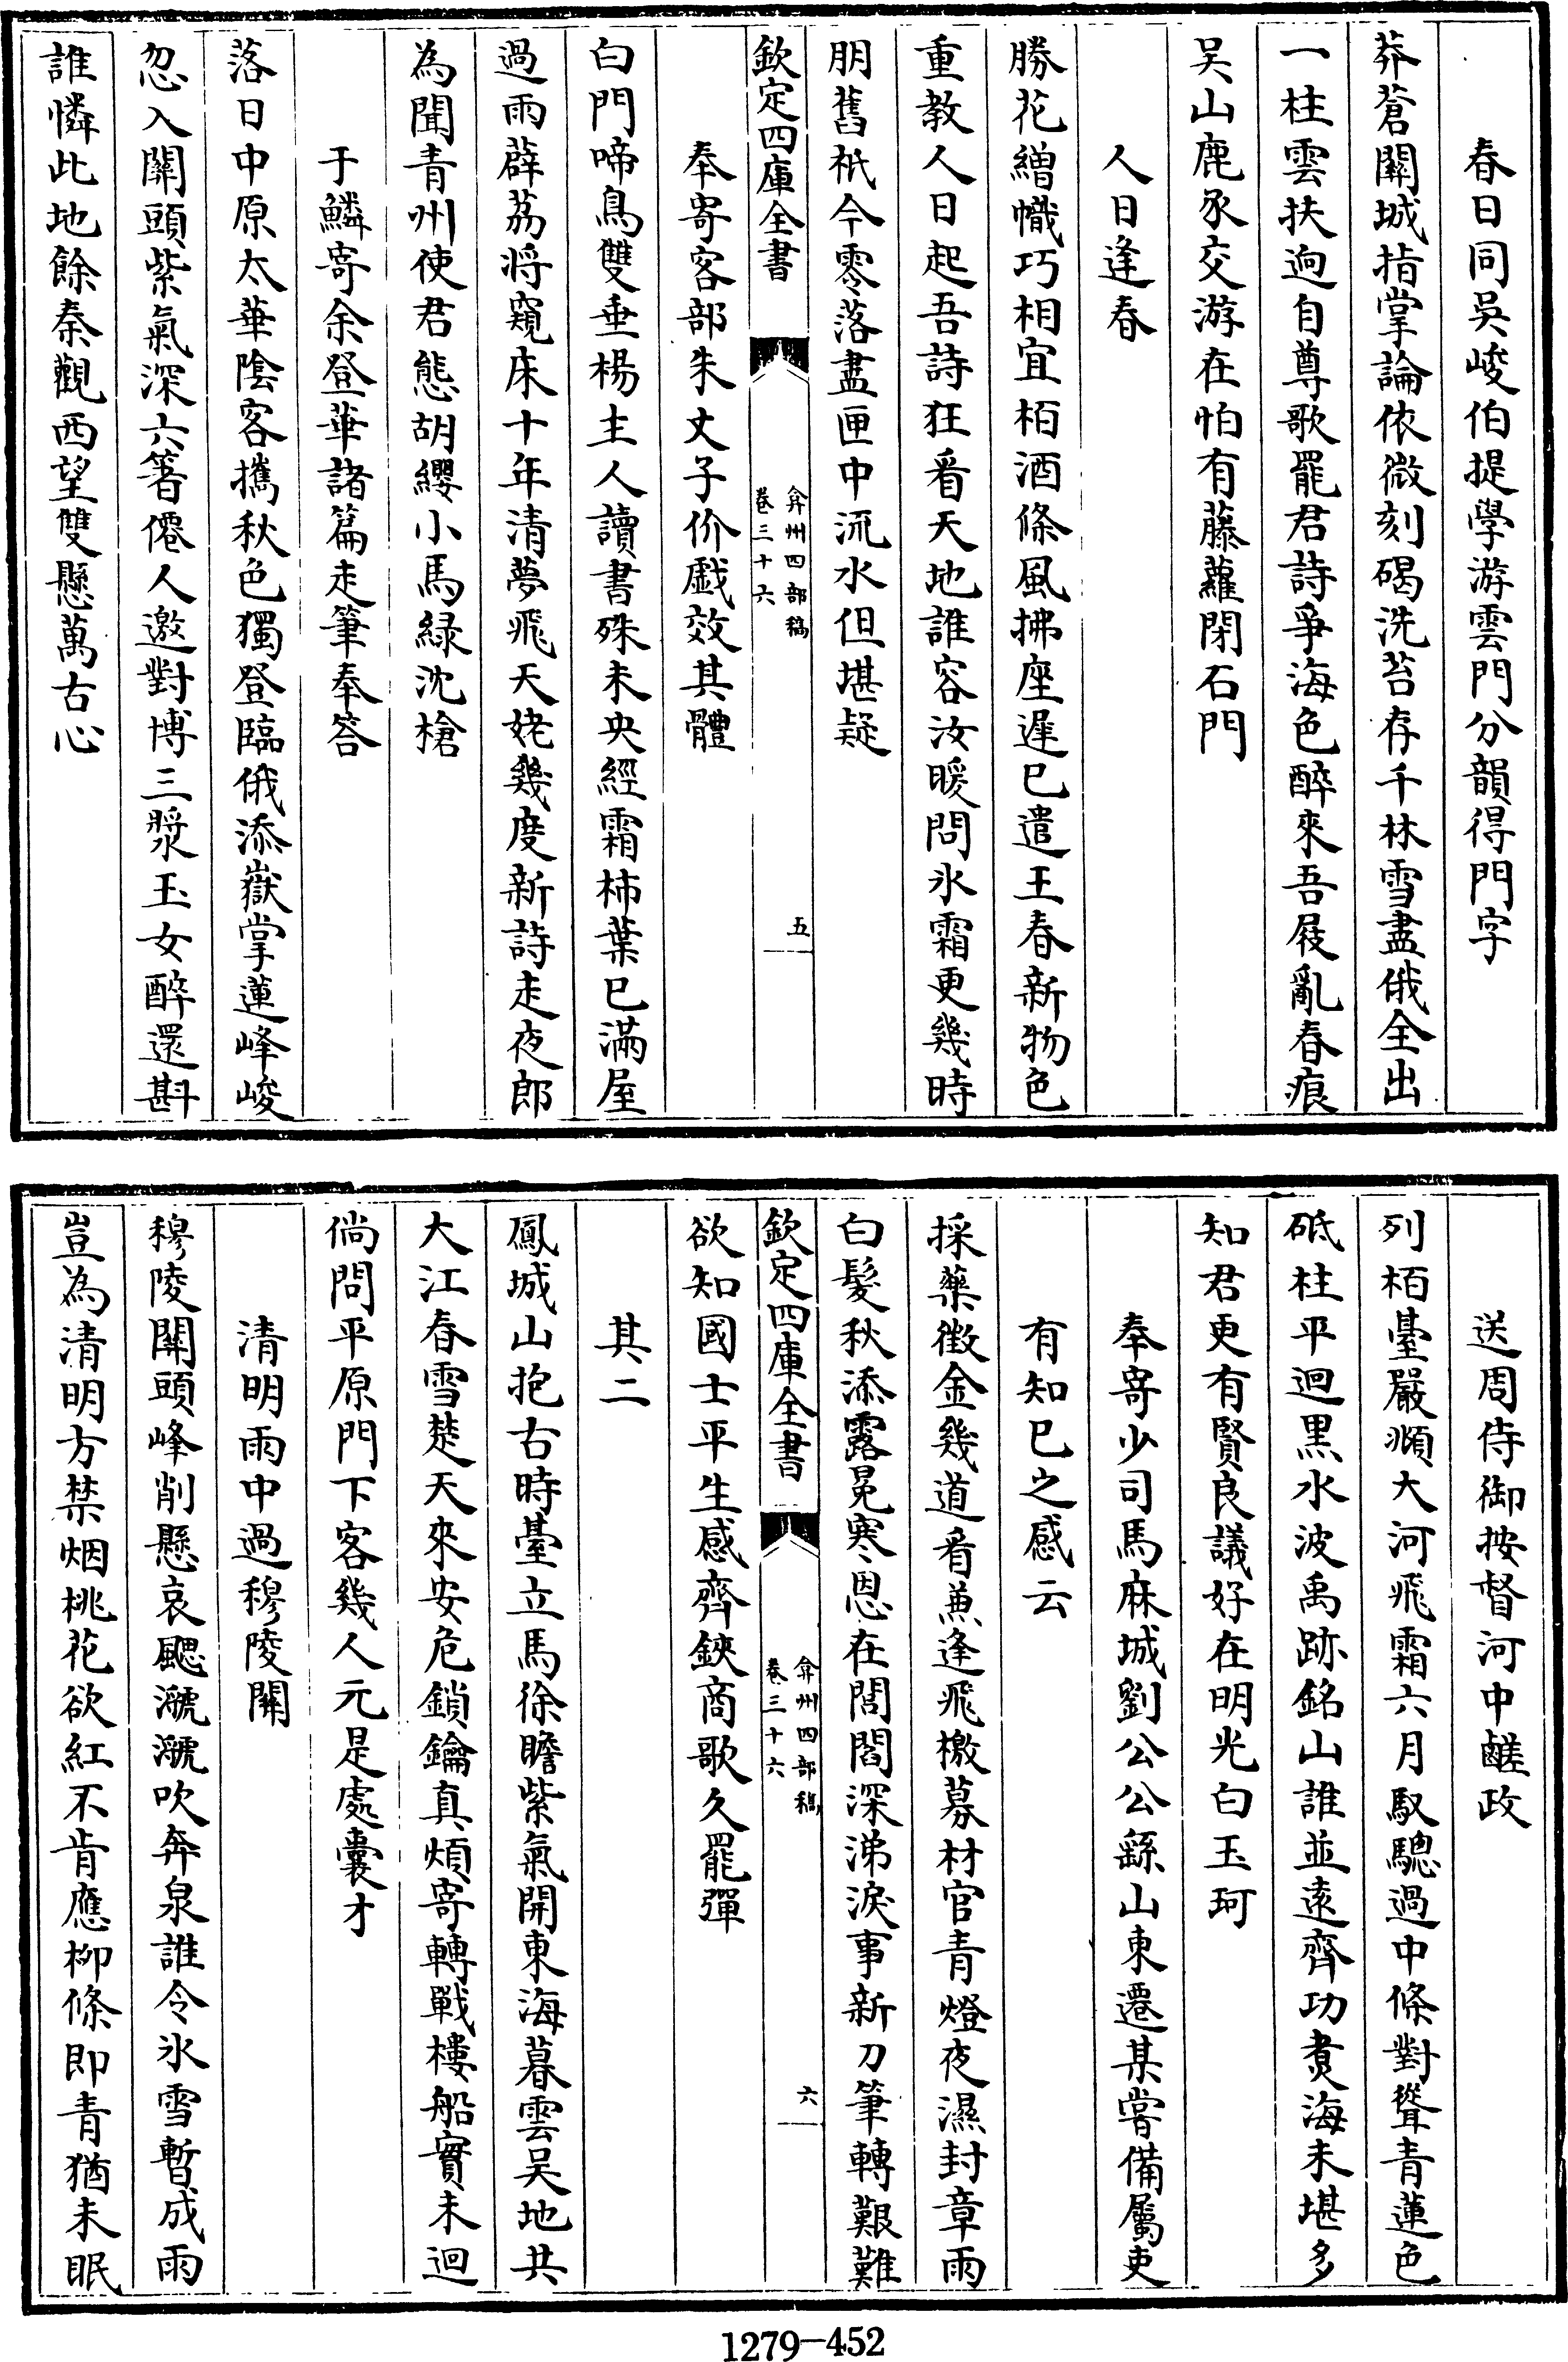 春日同吳峻伯提學游雲門分韻得門字
莽蒼關城指掌論依微刻碣洗苔存千林雪盡俄全出
一柱雲扶迥自尊歌罷君詩爭海色醉來吾屐亂春痕
吴山鹿豕交游在怕有藤蘿閉石門
人日逢春
勝花繒幟巧相宜栢酒條風拂座遲已遣王春新物色
重教人日起吾詩狂看天地誰容汝暖問氷霜更幾時
朋舊祇今零落盡匣中流水但堪疑
欽定四庫全書
弇州四部稿
卷三十六
五
奉寄客部朱丈子价戯效其體
白門啼鳥雙垂楊主人讀書殊未央經霜柿葉已滿屋
過雨薜荔將窺床十年清夢飛天姥幾度新詩走夜郎
為聞青州使君態胡纓小馬緑沈槍
于鱗寄余登華諸篇走筆奉答
落日中原太華陰客攜秋色獨登臨俄添嶽掌蓮峰峻
忽入關頭紫氣深六箸僊人邀對博三漿玉女醉還斟
誰憐此地餘秦觀西望雙懸萬古心
送周侍御按督河中鹺政
列栢臺嚴瀕大河飛霜六月馭驄過中條對聳青蓮色
砥柱平迴黒水波禹跡銘山誰並逺齊功煑海未堪多
知君更有賢良議好在明光白玉珂
奉寄少司馬麻城劉公公繇山東遷某嘗備屬吏
有知已之感云
採藥徴金幾道看兼逢飛檄募材官青燈夜濕封章雨
白髮秋添露冕寒恩在閭閻深涕淚事新刀筆轉艱難
欽定四庫全書
弇州四部稿
卷三十六
六
欲知國士平生感齊鋏商歌久罷彈
其二
鳳城山抱古時臺立馬徐瞻紫氣開東海暮雲吴地共
大江春雪楚天來安危鎖鑰真煩寄轉戰樓船實未迴
倘問平原門下客幾人元是處囊才
清明雨中過穆陵關
穆陵關頭峰削懸哀颸㶁㶁吹奔泉誰令氷雪暫成雨
豈為清明方禁烟桃花欲紅不肯應栁條即青猶未眠
1279-452